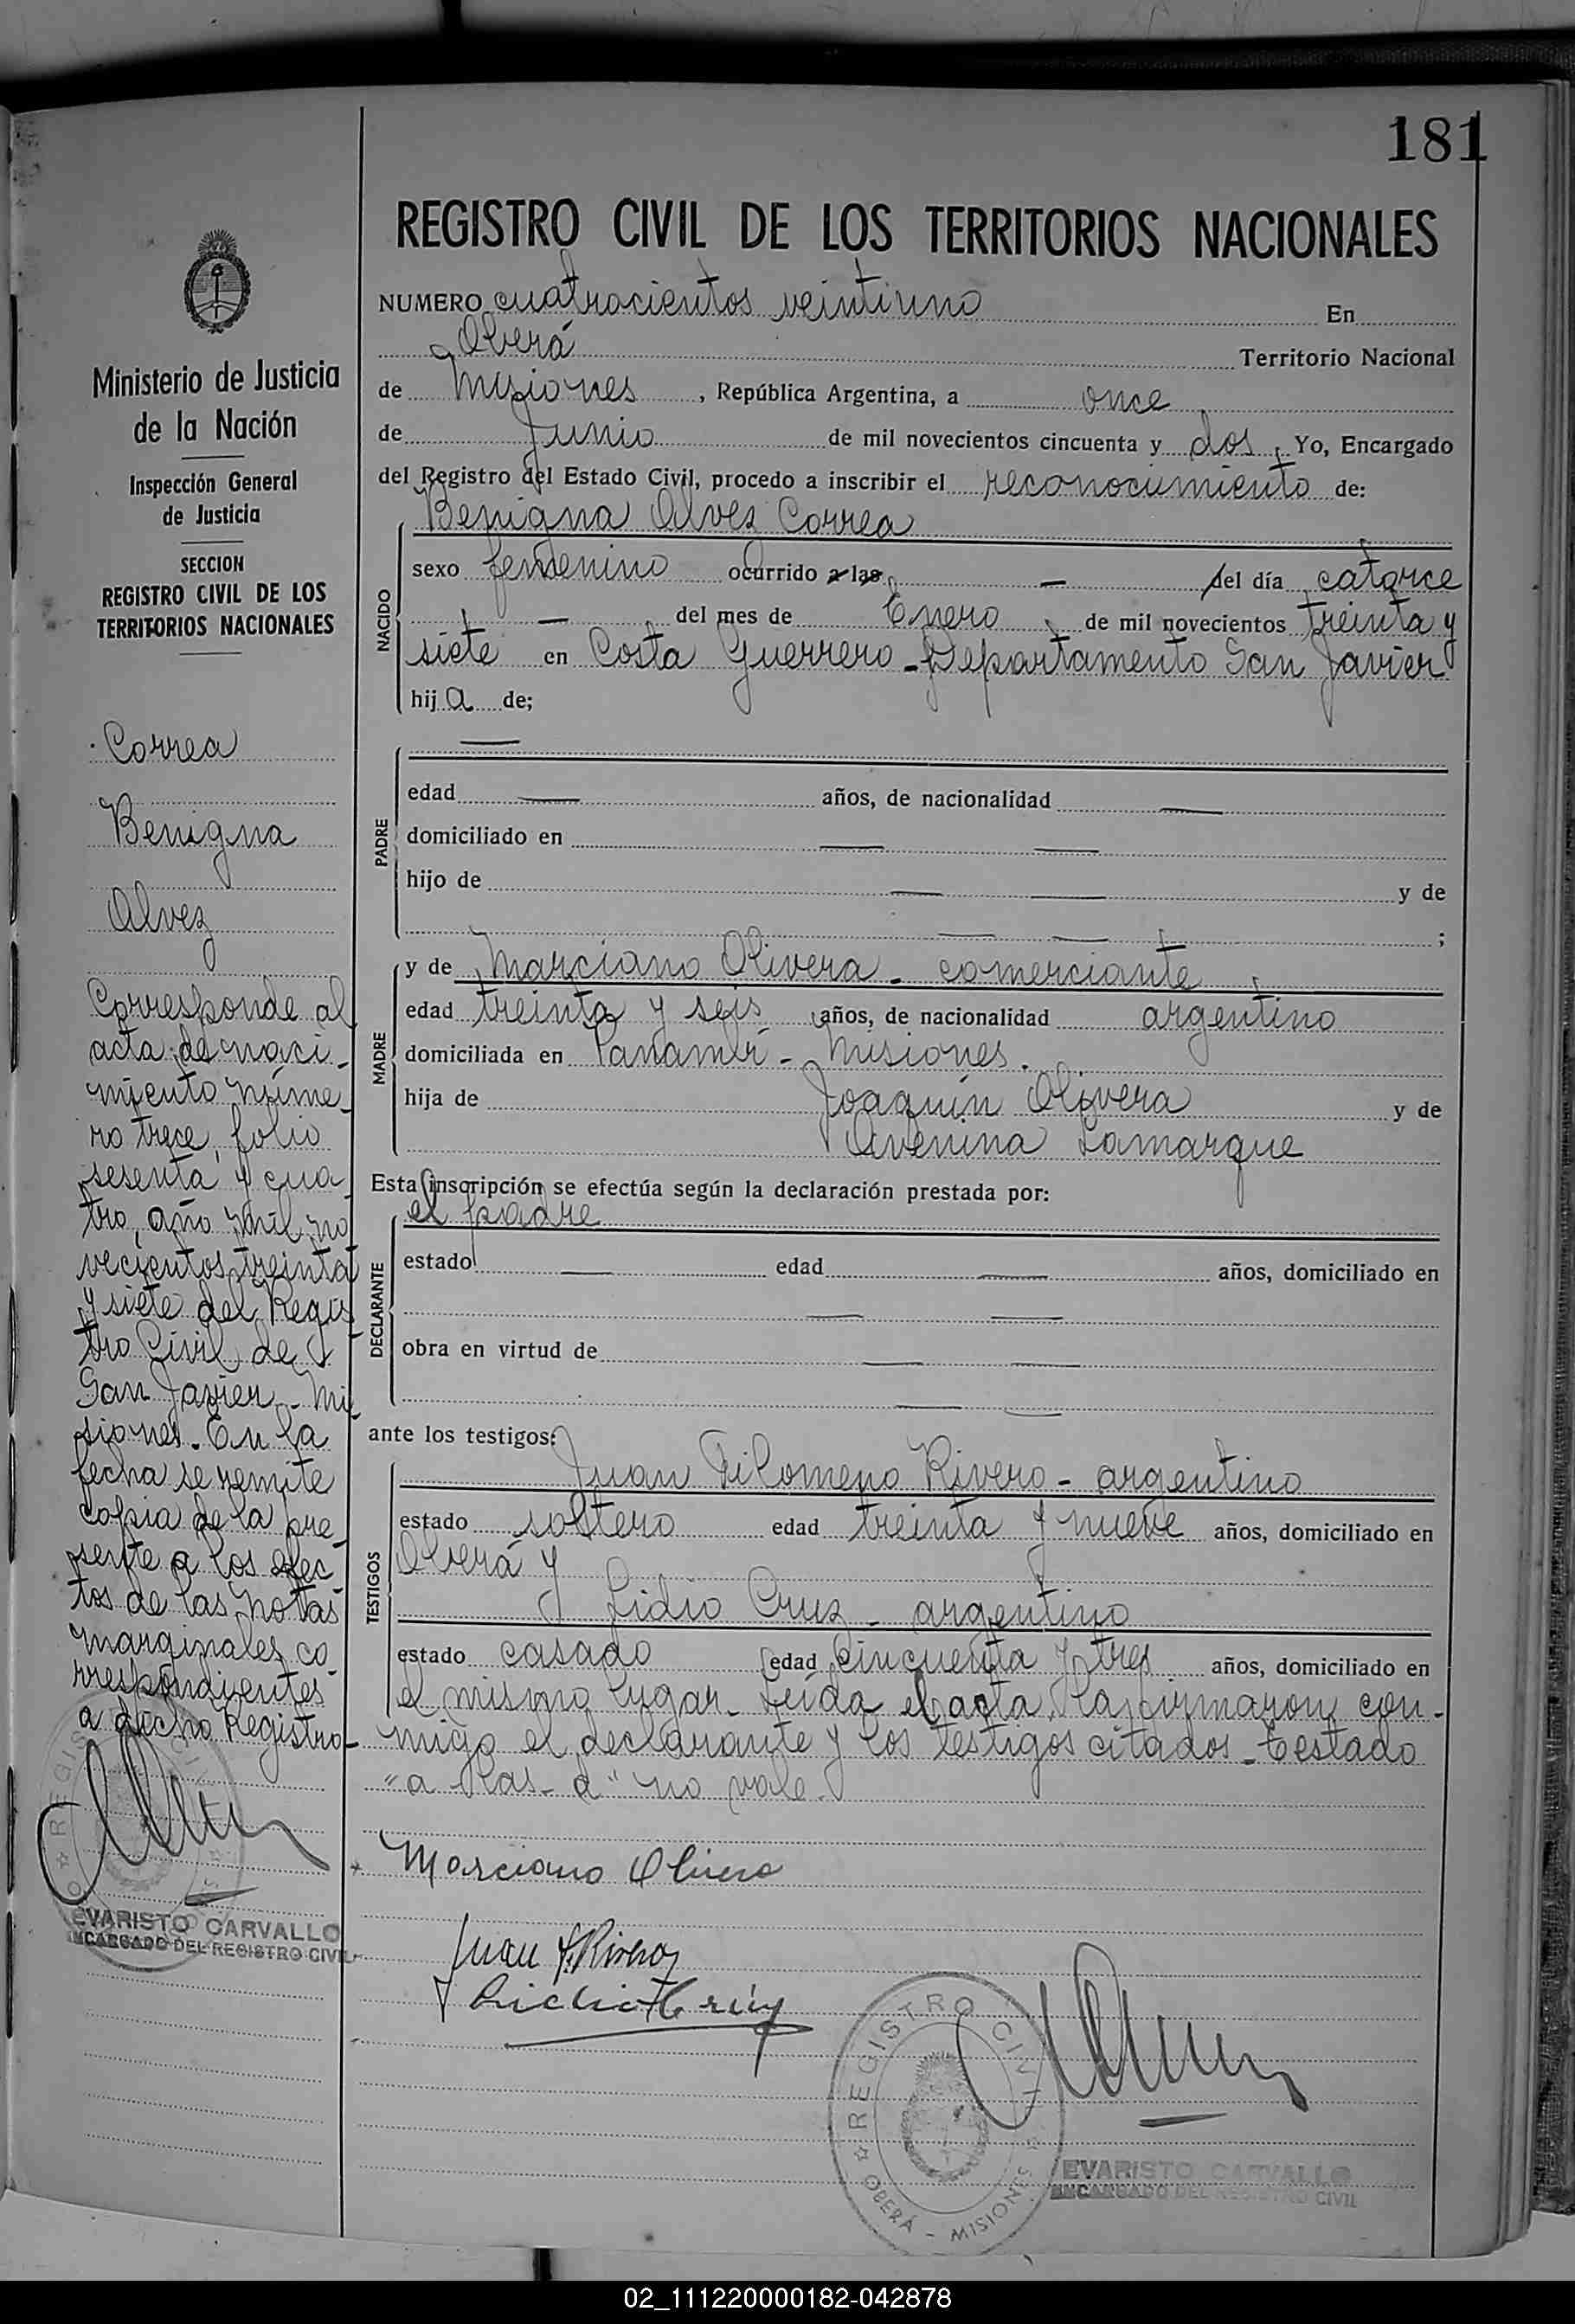 181
REGISTRO CIVIL DE LOS TERRITORIOS NACIONALES
Ministerio de Justicia
de la Nación
Inspección General
de Justicia
SECCION
REGISTRO CIVIL DE LOS
TERRITORIOS NACIONALES
Correa
Benigna
Alvez
Corresponde al
acta de naci-
miento núme-
ro trece, folio
sesenta y cua-
tro, año mil no
vecientos treinta
y siete del Regis
tro Civil de
San Javier - Mi-
siones. En la
fecha se remite
copia de la pre-
sente a los efec-
tos de las notas
marginales co-
rrespondientes
a dicho Registro-
EVARISTO CARVALLO
ENCARGADO DEL REGISTRO CIVIL
NUMERO cuatrocientos veintiuno En
Oberá Territorio Nacional
de Misiones, República Argentina, a once
de Junio de mil novecientos cincuenta y dos, Yo, Encargado
del Registro del Estado Civil, procedo a inscribir el reconocimiento de:
NACIDO
Benigna Alvez Correa
sexo femenino ocurrido a las — del día catorce
— del mes de Enero de mil novecientos treinta y
siete en Costa Guerrero - Departamento San Javier
hija de;
PADRE
—
edad — años, de nacionalidad —
domiciliado en — —
hijo de — — y de
— — ;
MADRE
y de Marciano Olivera - comerciante
edad treinta y seis años, de nacionalidad argentino
domiciliada en Panambí - Misiones.
hija de Joaquín Olivera y de
Avenina Lamarque
Esta inscripción se efectúa según la declaración prestada por:
DECLARANTE
el padre
estado — edad — años, domiciliado en
— —
obra en virtud de — —
— —
ante los testigos:
TESTIGOS
Juan Filomeno Rivero - argentino
estado soltero edad treinta y nueve años, domiciliado en
Oberá y
Lidio Cruz - argentino
estado casado edad cincuenta y tres años, domiciliado en
el mismo lugar. Leída el acta, la firmaron con-
migo el declarante y los testigos citados - Testado
"a las - d" no vale.
Marciano Olivera
Juan F. Rivero
Lidio Cruz
REGISTRO CIVIL
OBERÁ - MISIONES
EVARISTO CARVALLO
ENCARGADO DEL REGISTRO CIVIL
02_111220000182-042878